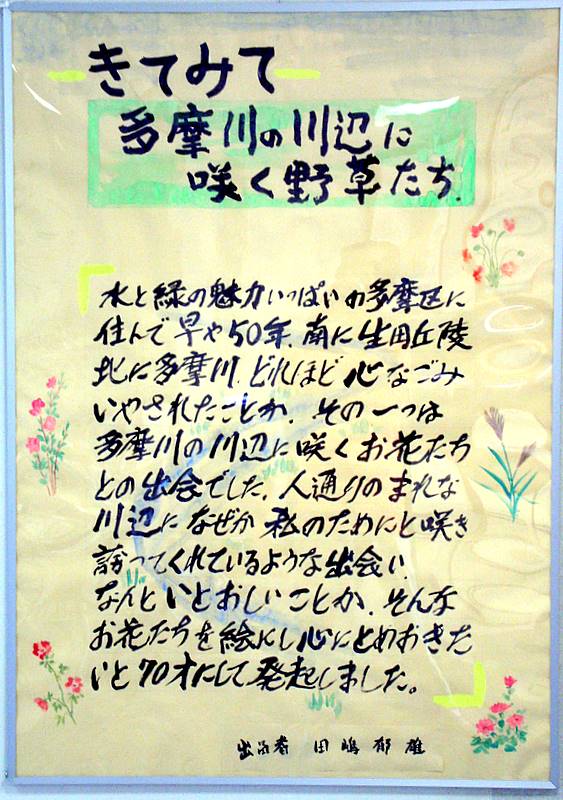 きてみて
多摩川の川辺に
咲く野草たち.
水と緑の魅力いっぱいの多摩区に
住んで早や50年.南に生田丘陵
北に多摩川.どれほど心なごみ
いやされたことか.その一つは
多摩川の川辺に咲くお花たち
との出会でした.人通りのまれな
川辺になぜか私のためにと咲き
誇ってくれているような出会い.
なんといとおしいことか.そんな
お花たちを絵にし心にとめおきた
いと70才にして発起しました。
出品者 田嶋郁雄